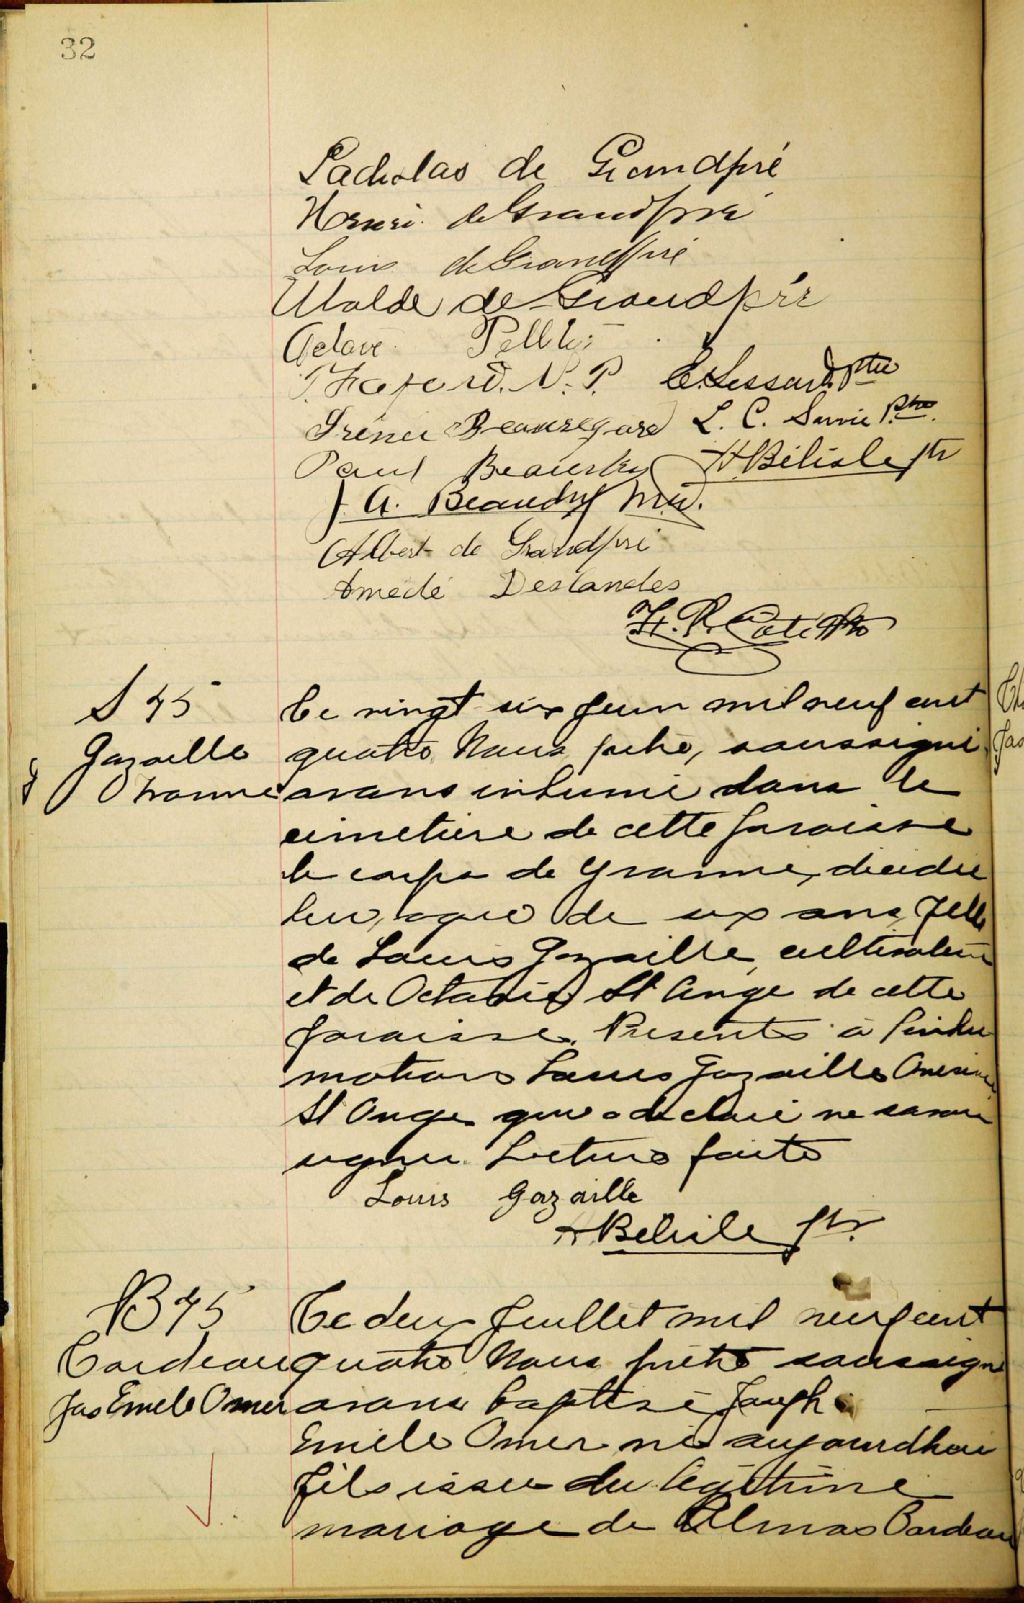 32
Ladislas de Grandpré
Henri de Grandpré
Louis de Grandpré
Ubalde de Grandpré
Octave
N. P. Lessard Ptre
Irénée Beauregard L. C. Ptre
Paul Beaudry H. Bélisle ptr
J. A. Beaudry M.D.
Albert de Grandpré
Amedé Deslandes
H. R. Coté Ptre
S 45
Gazaille
Yvonne
Ce vingt six juin mil neuf cent
quatre Nous prêtre, soussigné
avons inhumé dans le
cimetière de cette paroisse
le corps de Yvonne, décédée
hier, agée de six ans, fille
de Louis Gazaille, cultivateur
et de Octavie St Ange de cette
paroisse. Présents à l'inhu
mation Louis Gazaille
St Ange qui a déclaré ne savoir
signer. Lecture faite
Louis Gazaille
H Bélisle ptr.
B 45
Jos Emile Omer
Ce deux Juillet mil neuf cent
quatre Nous prêtre soussigné
avons baptisé Joseph
Emile Omer né aujourdhui
fils issu du légitime
mariage de